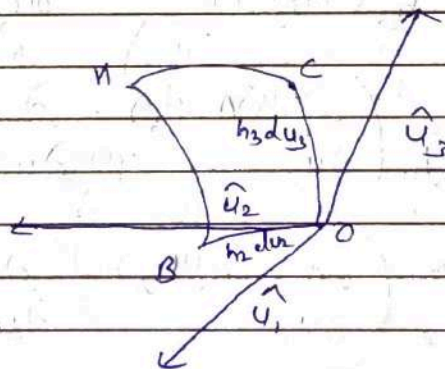 A C
h₃du₃ û₃
û₂
O
h₂du₂
B
û₁